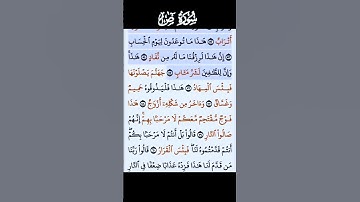 سُورَةُ صٓ
أَتْرَابٌ ۝ هَٰذَا مَا تُوعَدُونَ لِيَوْمِ ٱلْحِسَابِ
۝ إِنَّ هَٰذَا لَرِزْقُنَا مَا لَهُۥ مِن نَّفَادٍ ۝ هَٰذَاۚ
وَإِنَّ لِلطَّٰغِينَ لَشَرَّ مَـَٔابٍ ۝ جَهَنَّمَ يَصْلَوْنَهَا
فَبِئْسَ ٱلْمِهَادُ ۝ هَٰذَا فَلْيَذُوقُوهُ حَمِيمٌ
وَغَسَّاقٌ ۝ وَءَاخَرُ مِن شَكْلِهِۦٓ أَزْوَٰجٌ ۝ هَٰذَا
فَوْجٌ مُّقْتَحِمٌ مَّعَكُمْ لَا مَرْحَبًۢا بِهِمْۚ إِنَّهُمْ
صَالُوا۟ ٱلنَّارِ ۝ قَالُوا۟ بَلْ أَنتُمْ لَا مَرْحَبًۢا بِكُمْۖ
أَنتُمْ قَدَّمْتُمُوهُ لَنَاۖ فَبِئْسَ ٱلْقَرَارُ ۝ قَالُوا۟ رَبَّنَا
مَن قَدَّمَ لَنَا هَٰذَا فَزِدْهُ عَذَابًا ضِعْفًا فِى ٱلنَّارِ